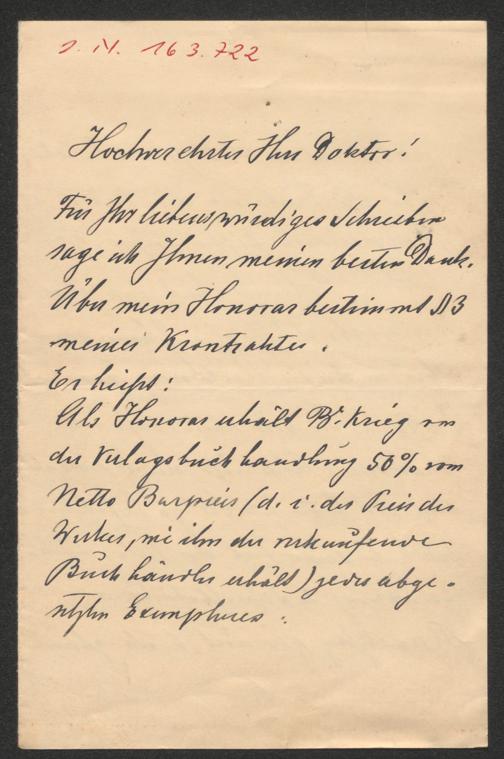 J. N. 163.722
Hochverehrter Herr Doktor!
Für Ihr liebenswürdiges Schreiben
sage ich Ihnen meinen besten Dank.
Über mein Honorar bestimmt § 3
meines Kontraktes.
Er heißt:
Als Honorar erhält Krieg von
der Verlagsbuchhandlung 50% vom
Netto Barpreis (d. i. der Preis des
Werkes, wie ihn der verkaufende
Buchhändler erhält) jedes abge-
setzten Exemplares.